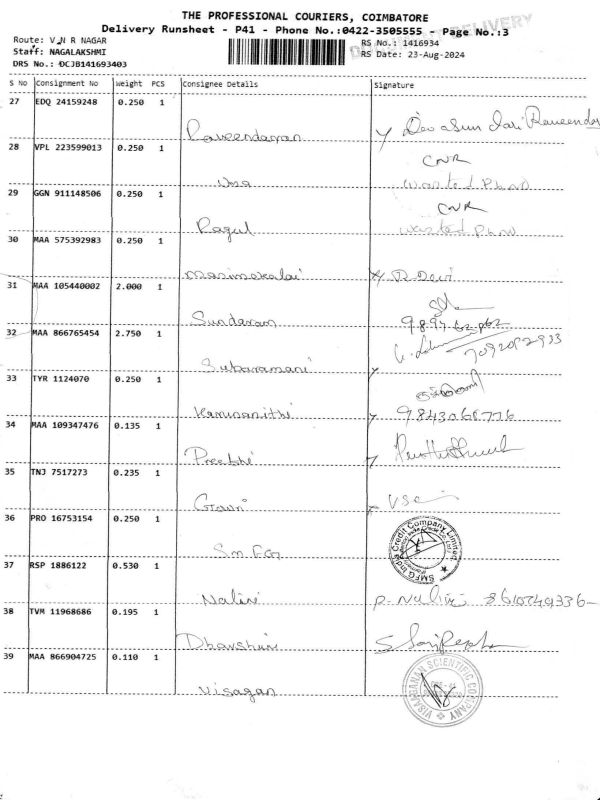 THE PROFESSIONAL COURIERS, COIMBATORE
Delivery Runsheet - P41 - Phone No.:0422-3505555 - Page No.:3
Route: V N R NAGAR
RS No.: 1416934
Staff: NAGALAKSHMI
RS Date: 23-Aug-2024
DRS No.: DCJB141693403
S No Consignment No Weight PCS Consignee Details Signature
27 EDQ 24159248 0.250 1
Raveendaran
28 VPL 223599013 0.250 1
CNR
Usa
29 GGN 911148506 0.250 1
CNR
Ragul
30 MAA 575392983 0.250 1
Manimekalai R Devi
31 MAA 105440002 2.000 1
Sundaram
32 MAA 866765454 2.750 1
7092092933
Subaramani
33 TYR 1124070 0.250 1
Karunanithi 9843068776
34 MAA 109347476 0.135 1
Preethi
35 TNJ 7517273 0.235 1
Gowri
36 PRO 16753154 0.250 1
SMFG India Credit Company Limited
Sm FG
37 RSP 1886122 0.530 1
Nalini P. Nalini 8610749336
38 TVM 11968686 0.195 1
Dharshini
39 MAA 866904725 0.110 1
VISAGANAN SCIENTIFIC COMPANY
Visagan